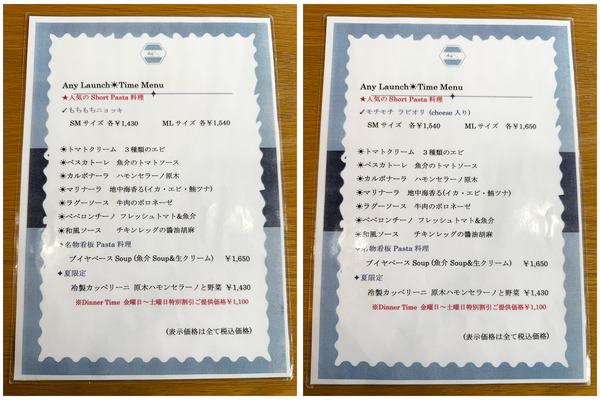 Any Launch☀Time Menu
★人気の Short Pasta 料理
✓もちもちニョッキ
SM サイズ 各￥1,430 ML サイズ 各￥1,540
☀トマトクリーム 3種類のエビ
☀ペスカトーレ 魚介のトマトソース
☀カルボナーラ ハモンセラーノ原木
☀マリナーラ 地中海香る(イカ・エビ・鮪ツナ)
☀ラグーソース 牛肉のボロネーゼ
☀ペペロンチーノ フレッシュトマト&魚介
☀和風ソース チキンレッグの醤油胡麻
✦名物看板 Pasta 料理
ブイヤベース Soup (魚介 Soup&生クリーム) ￥1,650
✦夏限定
冷製カッペリーニ 原木ハモンセラーノと野菜 ￥1,430
※Dinner Time 金曜日～土曜日特別割引ご提供価格￥1,100
(表示価格は全て税込価格)
Any Launch☀Time Menu
★人気の Short Pasta 料理
✓モチモチ ラビオリ (cheese 入り)
SM サイズ 各￥1,540 ML サイズ 各￥1,650
☀トマトクリーム 3種類のエビ
☀ペスカトーレ 魚介のトマトソース
☀カルボナーラ ハモンセラーノ原木
☀マリナーラ 地中海香る(イカ・エビ・鮪ツナ)
☀ラグーソース 牛肉のボロネーゼ
☀ペペロンチーノ フレッシュトマト&魚介
☀和風ソース チキンレッグの醤油胡麻
✦名物看板 Pasta 料理
ブイヤベース Soup (魚介 Soup&生クリーム) ￥1,650
✦夏限定
冷製カッペリーニ 原木ハモンセラーノと野菜 ￥1,430
※Dinner Time 金曜日～土曜日特別割引ご提供価格￥1,100
(表示価格は全て税込価格)